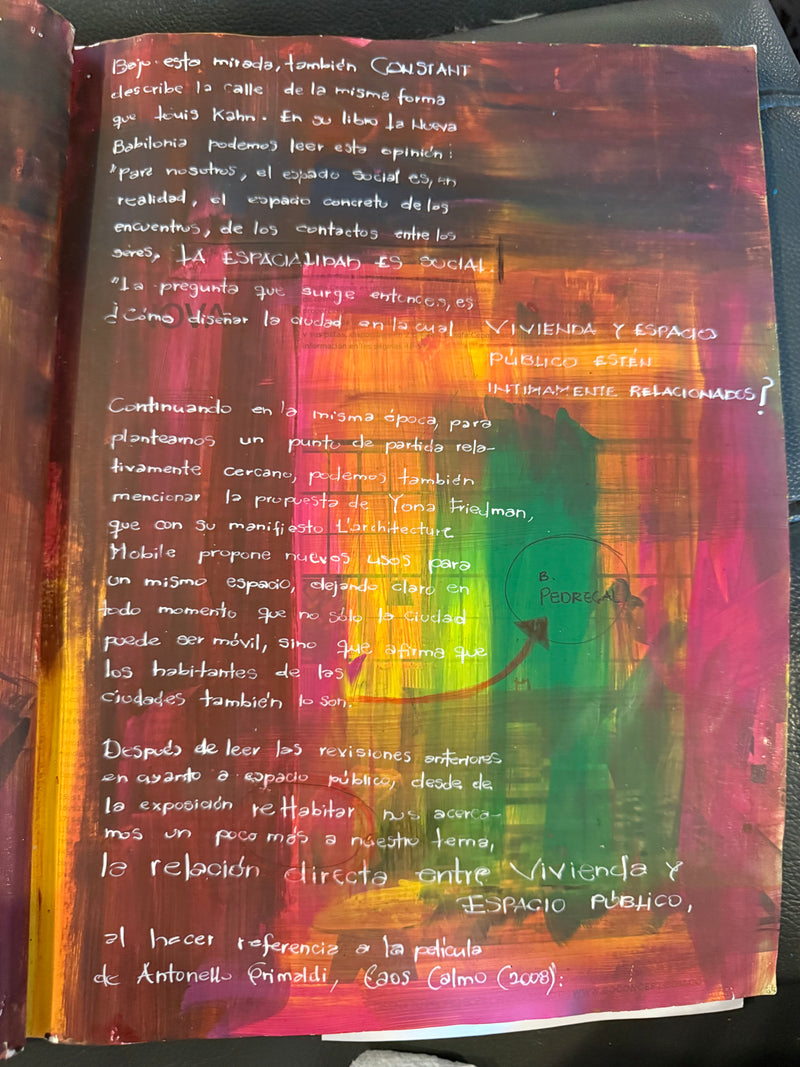 Bajo esta mirada, también CONSTANT
describe la calle de la misma forma
que Louis Kahn. En su libro La Nueva
Babilonia podemos leer esta opinión:
"Para nosotros, el espacio social es, en
realidad, el espacio concreto de los
encuentros, de los contactos entre los
seres, LA ESPACIALIDAD ES SOCIAL.
"La pregunta que surge entonces, es
¿Cómo diseñar la ciudad en la cual VIVIENDA Y ESPACIO
PÚBLICO ESTÉN
INTIMAMENTE RELACIONADOS?
Continuando en la misma época, para
plantearnos un punto de partida rela-
tivamente cercano, podemos también
mencionar la propuesta de Yona Friedman,
que con su manifiesto L'architecture
Mobile propone nuevos usos para
un mismo espacio, dejando claro en
todo momento que no sólo la ciudad
puede ser móvil, sino que afirma que
los habitantes de las
ciudades también lo son.
B.
PEDREGAL
Después de leer las revisiones anteriores
en cuanto a espacio público, desde de
la exposición reHabitar nos acerca-
mos un poco más a nuestro tema,
la relación directa entre Vivienda y
ESPACIO PÚBLICO,
al hacer referencia a la película
de Antonello Grimaldi, Caos Calmo (2008):